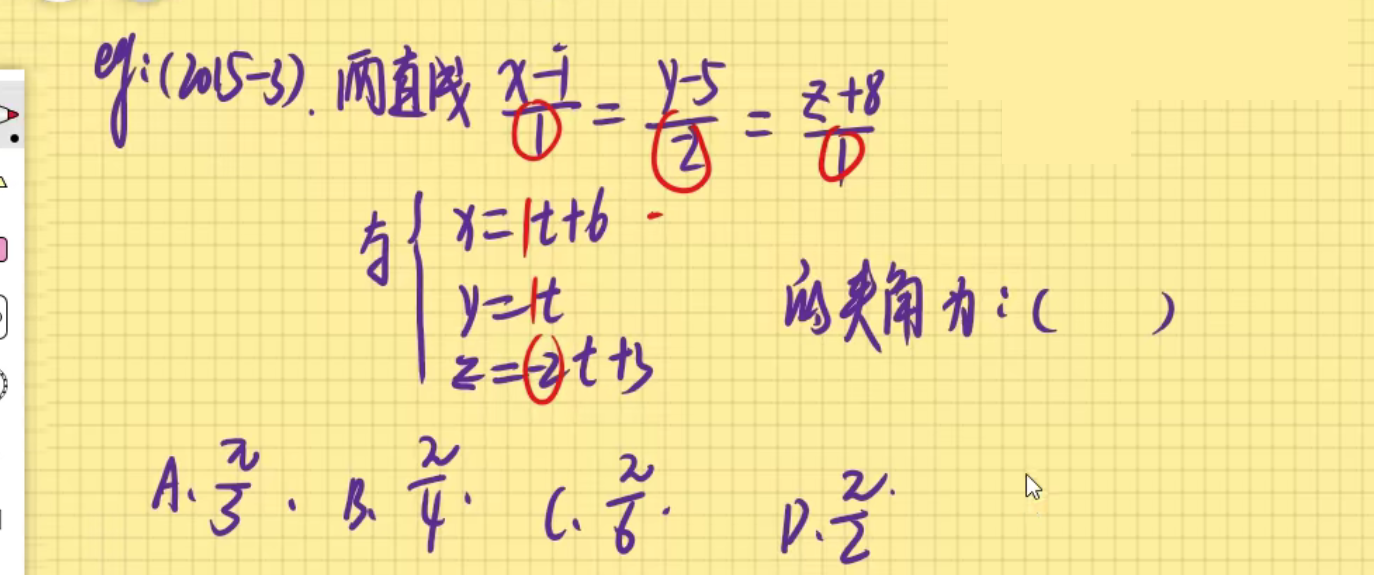 eg:(2015-3). 两直线 (x-1)/1 = (y-5)/2 = (z+8)/1
与 { x=1t+6
y=1t
z=-2t+3
的夹角为:( )
A. π/3. B. π/4. C. π/6. D. π/2.